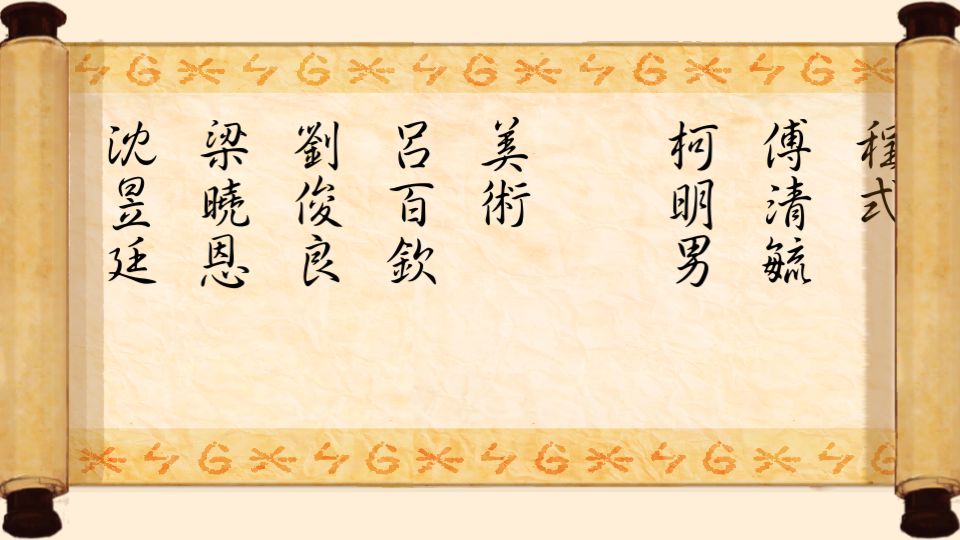 程式
傅清毓
柯明男
美術
呂百欽
劉俊良
梁曉恩
沈昱廷